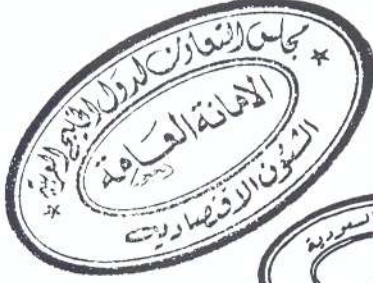 مجلس التعاون لدول الخليج العربية
الأمانة العامة
الشئون الاقتصادية
السعودية